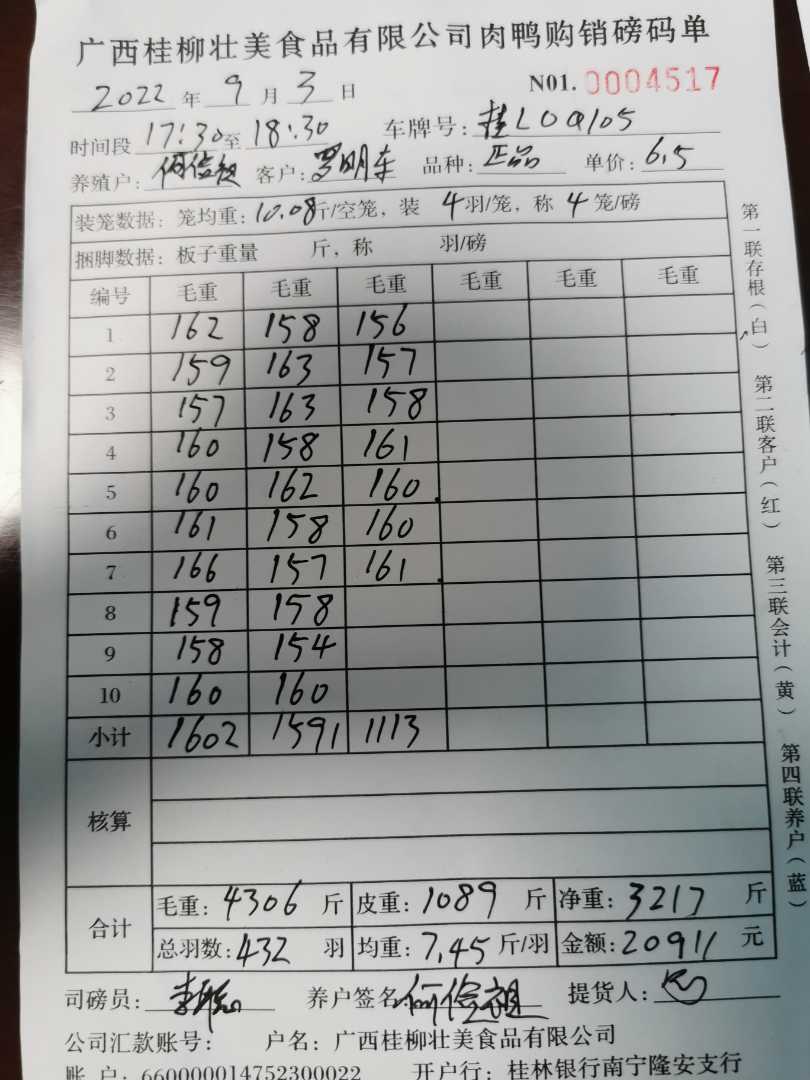 广西桂柳壮美食品有限公司肉鸭购销磅码单
2022 年 9 月 3 日 N01. 0004517
时间段 17:30 至 18:30 车牌号: 桂L0Q105
养殖户: 客户: 罗明东 品种: 正品 单价: 6.5
装笼数据: 笼均重: 10.08 斤/空笼, 装 4 羽/笼, 称 4 笼/磅
捆脚数据: 板子重量 斤, 称 羽/磅
编号 毛重 毛重 毛重 毛重 毛重 毛重
1 162 158 156
2 159 163 157
3 157 163 158
4 160 158 161
5 160 162 160
6 161 158 160
7 166 157 161
8 159 158
9 158 154
10 160 160
小计 1602 1591 1113
核算
合计 毛重: 4306 斤 皮重: 1089 斤 净重: 3217 斤
总羽数: 432 羽 均重: 7.45 斤/羽 金额: 20911 元
司磅员: 养户签名 提货人:
公司汇款账号: 户名: 广西桂柳壮美食品有限公司
账 户: 660000014752300022 开户行: 桂林银行南宁隆安支行
第一联存根(白) 第二联客户(红) 第三联会计(黄) 第四联养户(蓝)